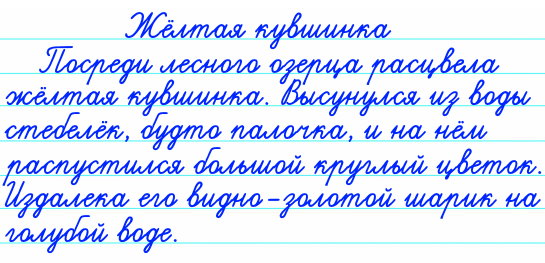 Жёлтая кувшинка
Посреди лесного озерца расцвела
жёлтая кувшинка. Высунулся из воды
стебелёк, будто палочка, и на нём
распустился большой круглый цветок.
Издалека его видно-золотой шарик на
голубой воде.